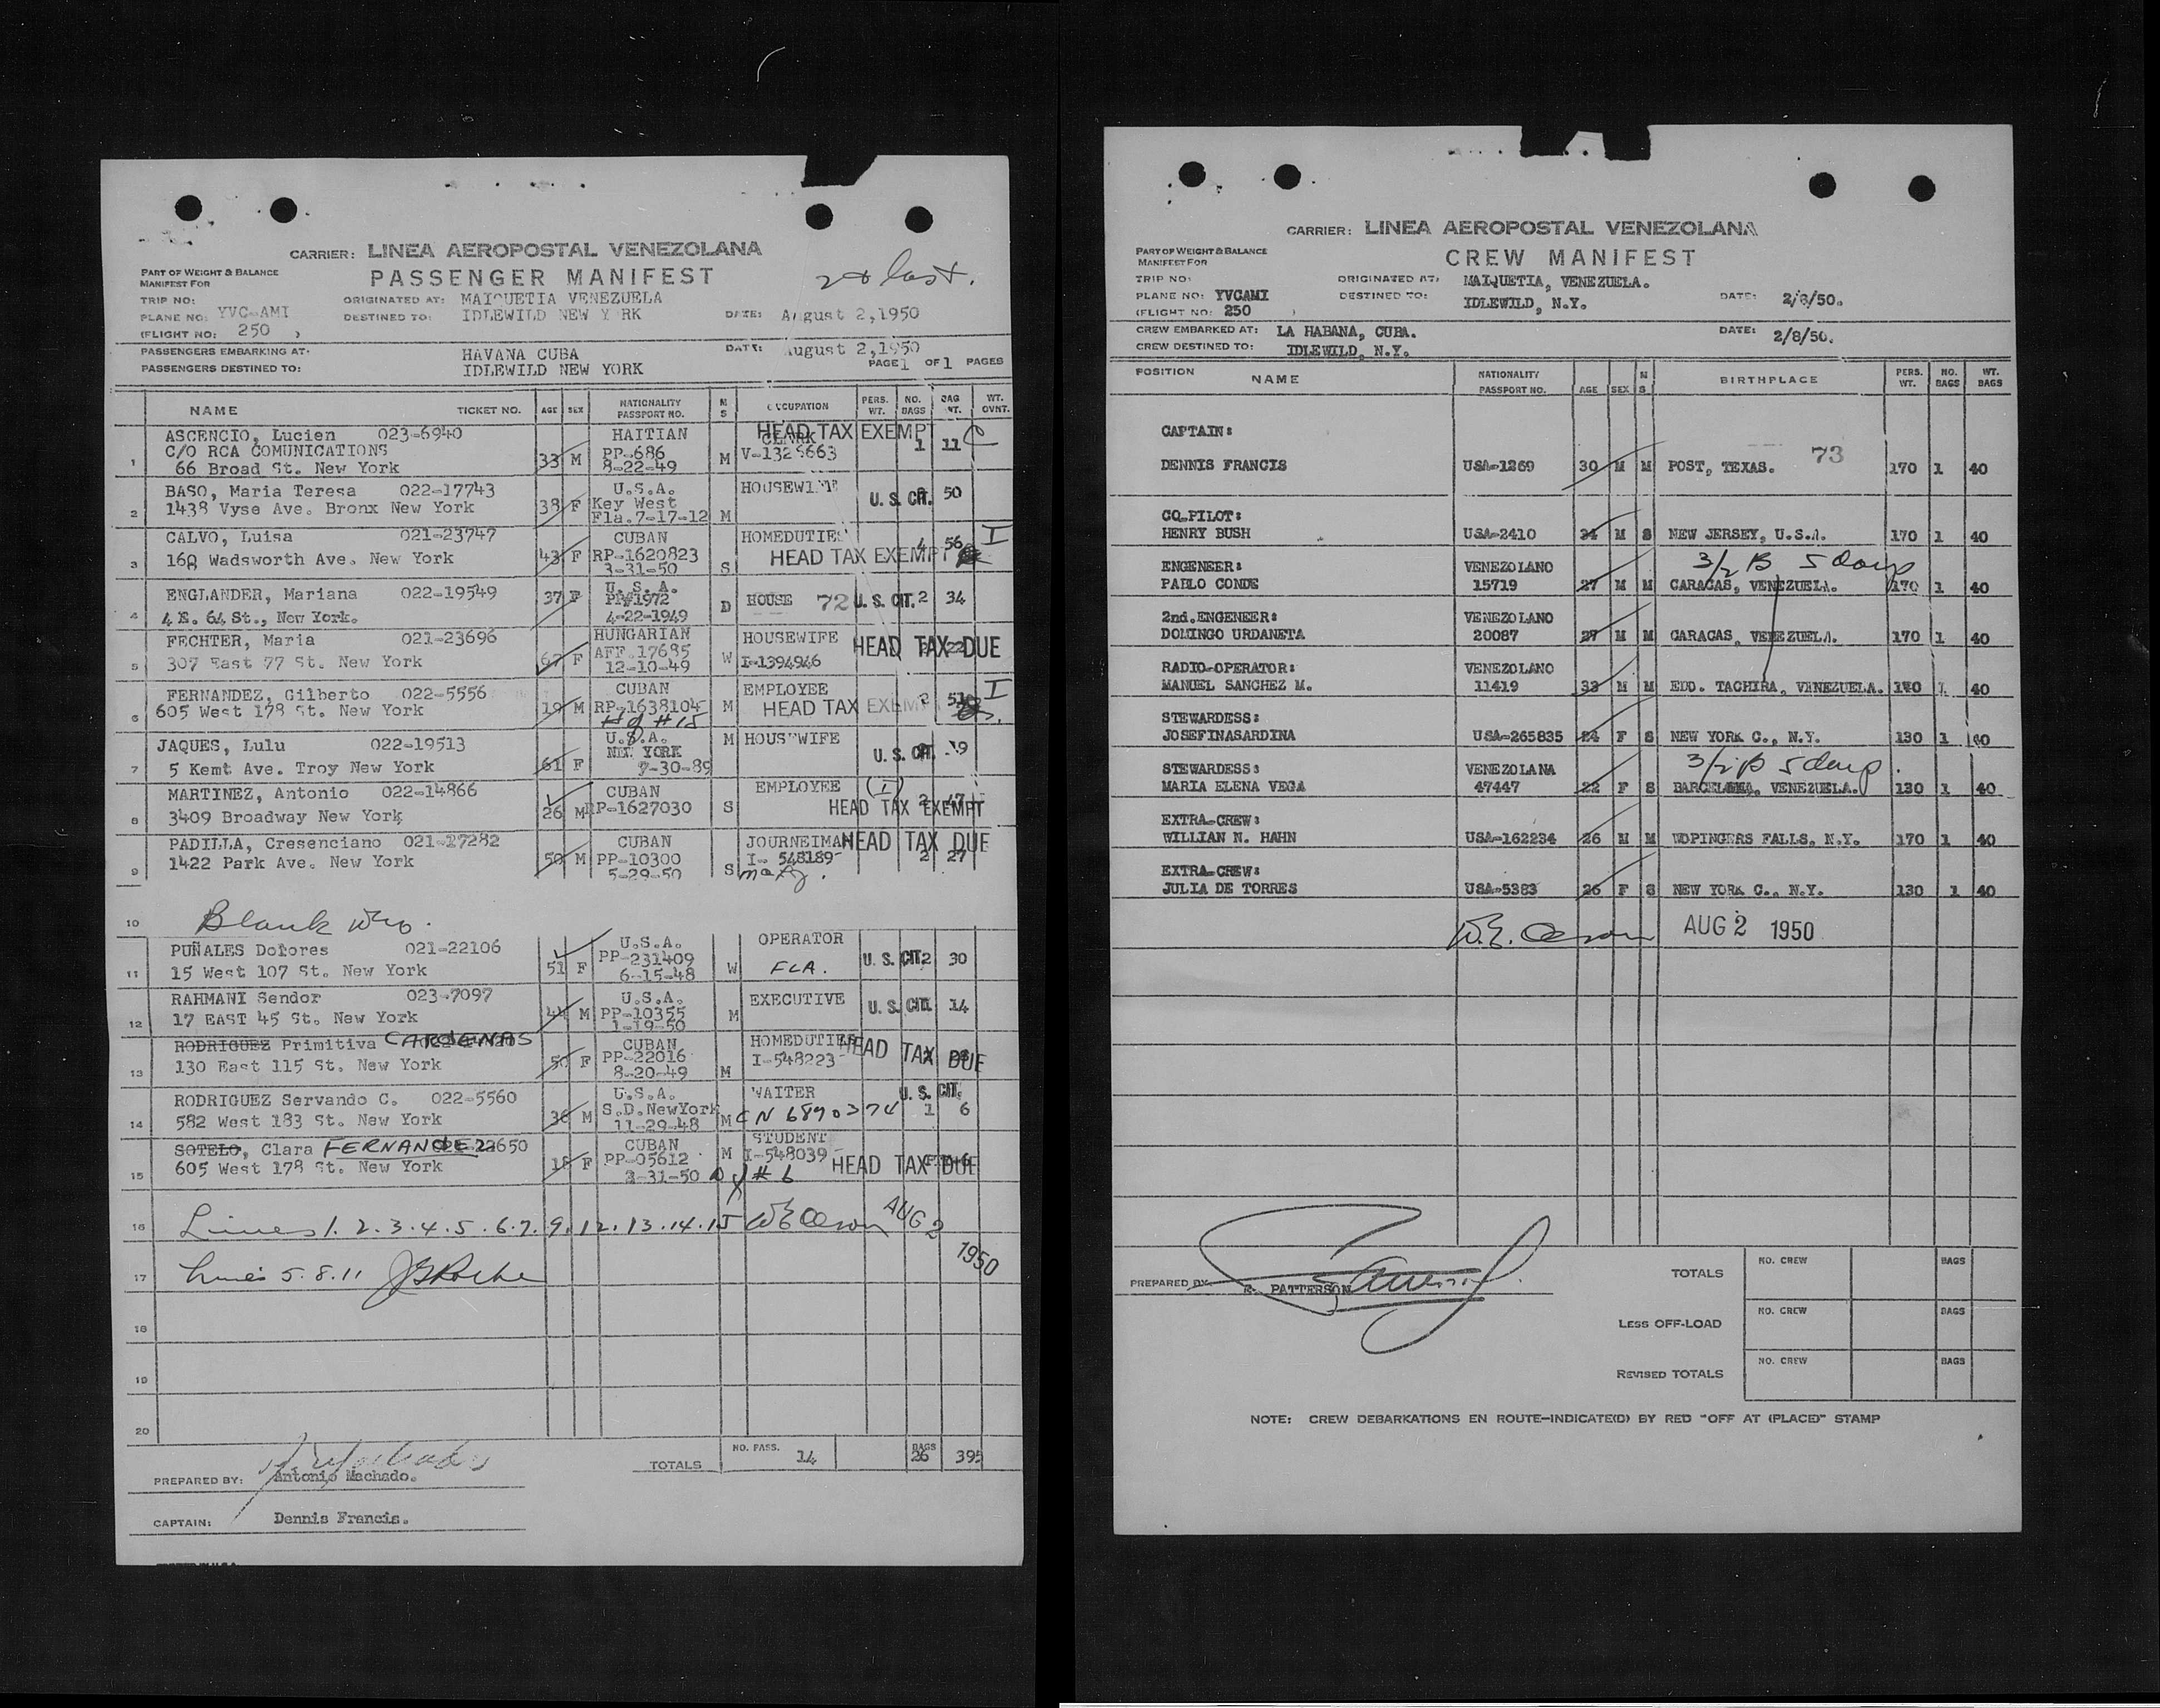 CARRIER: LINEA AEROPOSTAL VENEZOLANA
PART OF WEIGHT & BALANCE
MANIFEST FOR
PASSENGER MANIFEST
TRIP NO:
ORIGINATED AT: MAIQUETIA VENEZUELA
PLANE NO: YVC-AMI
DESTINED TO: IDLEWILD NEW YORK
DATE: August 2,1950
(FLIGHT NO: 250 )
PASSENGERS EMBARKING AT: HAVANA CUBA
DATE: August 2,1950
PASSENGERS DESTINED TO: IDLEWILD NEW YORK
PAGE 1 OF 1 PAGES
NAME TICKET NO. AGE SEX NATIONALITY PASSPORT NO. M S OCCUPATION PERS. WT. NO. BAGS BAG WT. WT. OVNT.
ASCENCIO, Lucien 023-6940 HAITIAN CLERK HEAD TAX EXEMPT
C/O RCA COMUNICATIONS PP-686 V-1325663 1 11 C
1 66 Broad St. New York 33 M 8-22-49 M
BASO, Maria Teresa 022-17743 U.S.A. HOUSEWIFE
1438 Vyse Ave. Bronx New York 38 F Key West U. S. CIT. 50
2 Fla.7-17-12 M
CALVO, Luisa 021-23747 CUBAN HOMEDUTIES 4 56 I
3 160 Wadsworth Ave. New York 43 F RP-1620823 HEAD TAX EXEMPT
3-31-50 S
ENGLANDER, Mariana 022-19549 37 F U.S.A. HOUSE 72 U. S. CIT. 2 34
PP#1972 D
4 4 E. 64 St., New York. 4-22-1949
FECHTER, Maria 021-23696 HUNGARIAN HOUSEWIFE HEAD TAX DUE
5 307 East 77 St. New York 67 F AFF.17685 W I-1394946 22
12-10-49
FERNANDEZ, Gilberto 022-5556 CUBAN EMPLOYEE I
6 605 West 178 St. New York 19 M RP-1638104 M HEAD TAX EXEMPT
H of #15
JAQUES, Lulu 022-19513 U.S.A. M HOUSEWIFE
NEW YORK U. S. CIT. 19
7 5 Kemt Ave. Troy New York 61 F 7-30-89
MARTINEZ, Antonio 022-14866 CUBAN EMPLOYEE (I)
8 3409 Broadway New York 26 M RP-1627030 S HEAD TAX EXEMPT 2 47
PADILLA, Cresenciano 021-27282 CUBAN JOURNEIMAN HEAD TAX DUE
1422 Park Ave. New York 50 M PP-10300 I- 548189 2 27
9 5-29-50 S
10 Blank
PUÑALES Dolores 021-22106 U.S.A. OPERATOR
PP-231409 U. S. CIT. 2 30
11 15 West 107 St. New York 51 F 6-15-48 W FLA.
RAHMANI Sendor 023-7097 U.S.A. EXECUTIVE
12 17 EAST 45 St. New York 44 M PP-10355 M U. S. CIT. 14
1-19-50
RODRIGUEZ Primitiva CARDENAS CUBAN HOMEDUTIES
13 130 East 115 St. New York 50 F PP-22016 I-548223 HEAD TAX DUE
8-20-49 M
RODRIGUEZ Servando C. 022-5560 U.S.A. WAITER U. S. CIT.
14 582 West 183 St. New York 36 M S.D.NewYork M CN 6890374 1 6
11-29-48
SOTELO, Clara FERNANDEZ CUBAN M STUDENT
605 West 178 St. New York 18 F PP-05612 I-548039 HEAD TAX DUE
15 3-31-50 # 6
16 Lines 1. 2. 3. 4. 5. 6. 7. 9. 12. 13. 14. 15 W E Olson AUG 2 1950
17 Lines 5. 8. 11
18
19
20
TOTALS NO. PASS. 14 BAGS 26 395
PREPARED BY: Antonio Machado.
CAPTAIN: Dennis Francis.
CARRIER: LINEA AEROPOSTAL VENEZOLANA
PART OF WEIGHT & BALANCE
MANIFEST FOR
CREW MANIFEST
TRIP NO:
ORIGINATED AT: MAIQUETIA, VENEZUELA.
PLANE NO: YVCAMI
DESTINED TO: IDLEWILD, N.Y.
DATE: 2/8/50.
(FLIGHT NO: 250 )
CREW EMBARKED AT: LA HABANA, CUBA.
DATE: 2/8/50.
CREW DESTINED TO: IDLEWILD, N.Y.
POSITION NAME NATIONALITY PASSPORT NO. AGE SEX M S BIRTHPLACE PERS. WT. NO. BAGS WT. BAGS
CAPTAIN:
DENNIS FRANCIS USA-1269 30 M M POST, TEXAS. 73 170 1 40
CO-PILOT:
HENRY BUSH USA-2410 34 M S NEW JERSEY, U.S.A. 170 1 40
ENGENEER: VENEZOLANO 3/2 B 5 days
PABLO CONDE 15719 27 M M CARACAS, VENEZUELA. 170 1 40
2nd.ENGENEER: VENEZOLANO
DOMINGO URDANETA 20087 27 M M CARACAS, VENEZUELA. 170 1 40
RADIO-OPERATOR: VENEZOLANO
MANUEL SANCHEZ M. 11419 33 M M EDD. TACHIRA, VENEZUELA. 170 1 40
STEWARDESS:
JOSEFINASARDINA USA-265835 24 F S NEW YORK C., N.Y. 130 1 40
STEWARDESS: VENEZOLANA 3/2 B 5 days.
MARIA ELENA VEGA 47447 22 F S BARCELONA, VENEZUELA. 130 1 40
EXTRA-CREW:
WILLIAN N. HAHN USA-162234 26 M M WOPINGERS FALLS, N.Y. 170 1 40
EXTRA-CREW:
JULIA DE TORRES USA-5383 26 F S NEW YORK C., N.Y. 130 1 40
W.E. Olson AUG 2 1950
PREPARED BY E. PATTERSON
TOTALS NO. CREW BAGS
LESS OFF-LOAD NO. CREW BAGS
REVISED TOTALS NO. CREW BAGS
NOTE: CREW DEBARKATIONS EN ROUTE-INDICATE(D) BY RED "OFF AT (PLACE)" STAMP